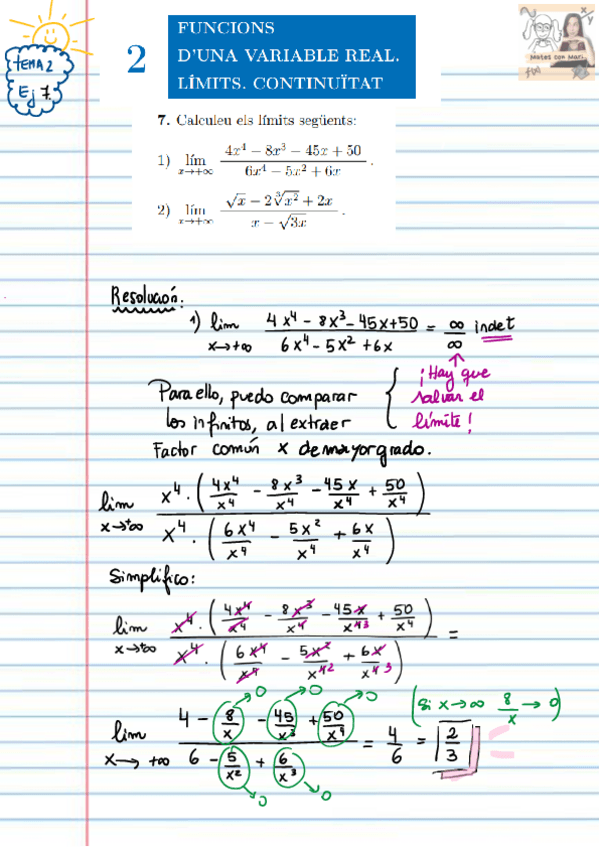 TEMA 2
Ej 7.
2
FUNCIONS
D'UNA VARIABLE REAL.
LÍMITS. CONTINUÏTAT
Mates con Mari
f(x)
x
y
7. Calculeu els límits següents:
1) lím x→+∞ (4x⁴ − 8x³ − 45x + 50) / (6x⁴ − 5x² + 6x) .
2) lím x→+∞ (√x − 2∛x² + 2x) / (x − √3x) .
Resolución:
1) lim x→+∞ (4x⁴ − 8x³ − 45x + 50) / (6x⁴ − 5x² + 6x) = ∞/∞ indet
¡Hay que
salvar el
límite!
Para ello, puedo comparar
los infinitos, al extraer
Factor común x de mayor grado.
lim x→+∞ x⁴ · (4x⁴/x⁴ − 8x³/x⁴ − 45x/x⁴ + 50/x⁴) / x⁴ · (6x⁴/x⁴ − 5x²/x⁴ + 6x/x⁴)
Simplifico:
lim x→+∞ x⁴ · (4x⁴/x⁴ − 8x³/x⁴ − 45x/x⁴³ + 50/x⁴) / x⁴ · (6x⁴/x⁴ − 5x²/x⁴² + 6x/x⁴³) =
(Si x→∞ 8/x → 0)
0 0 0
lim x→+∞ (4 − 8/x − 45/x³ + 50/x⁴) / (6 − 5/x² + 6/x³) = 4/6 = 2/3
0 0